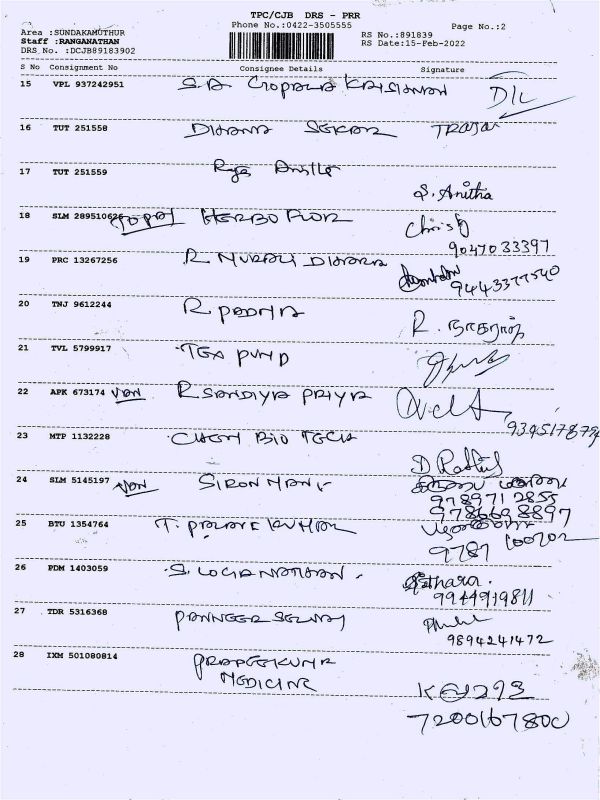 TPC/CJB DRS - PRR
Phone No.:0422-3505555
Page No.:2
Area :SUNDAKAMUTHUR
Staff :RANGANATHAN
DRS No. :DCJB89183902
RS No.:891839
RS Date:15-Feb-2022
S No Consignment No Consignee Details Signature
15 VPL 937242951 S.A. GOPALA KRISHNAN D/L
16 TUT 251558 DHANA SEKAR
17 TUT 251559 Raja
S. Anitha
18 SLM 289510626 HERBO FLOR Christy
9047033397
19 PRC 13267256 R MURALI DHARA
9443377540
20 TNJ 9612244 R PADMA
R.
21 TVL 5799917 TEX PUMP
22 APK 673174 VAN R SANDIYA PRIYA
23 MTP 1132228 CHEM BIO TECH
D
24 SLM 5145197 VAN SIRON MANI
978971 2855
9786698897
25 BTU 1354764 T. KUMAR
9787 100702
26 PDM 1403059 S. LOGANATHAN.
9944919811
27 TDR 5316368 PANNEER SELVAM
9894241472
28 IXM 501080814 PRADEEKUMR
MEDICINE
7200167800